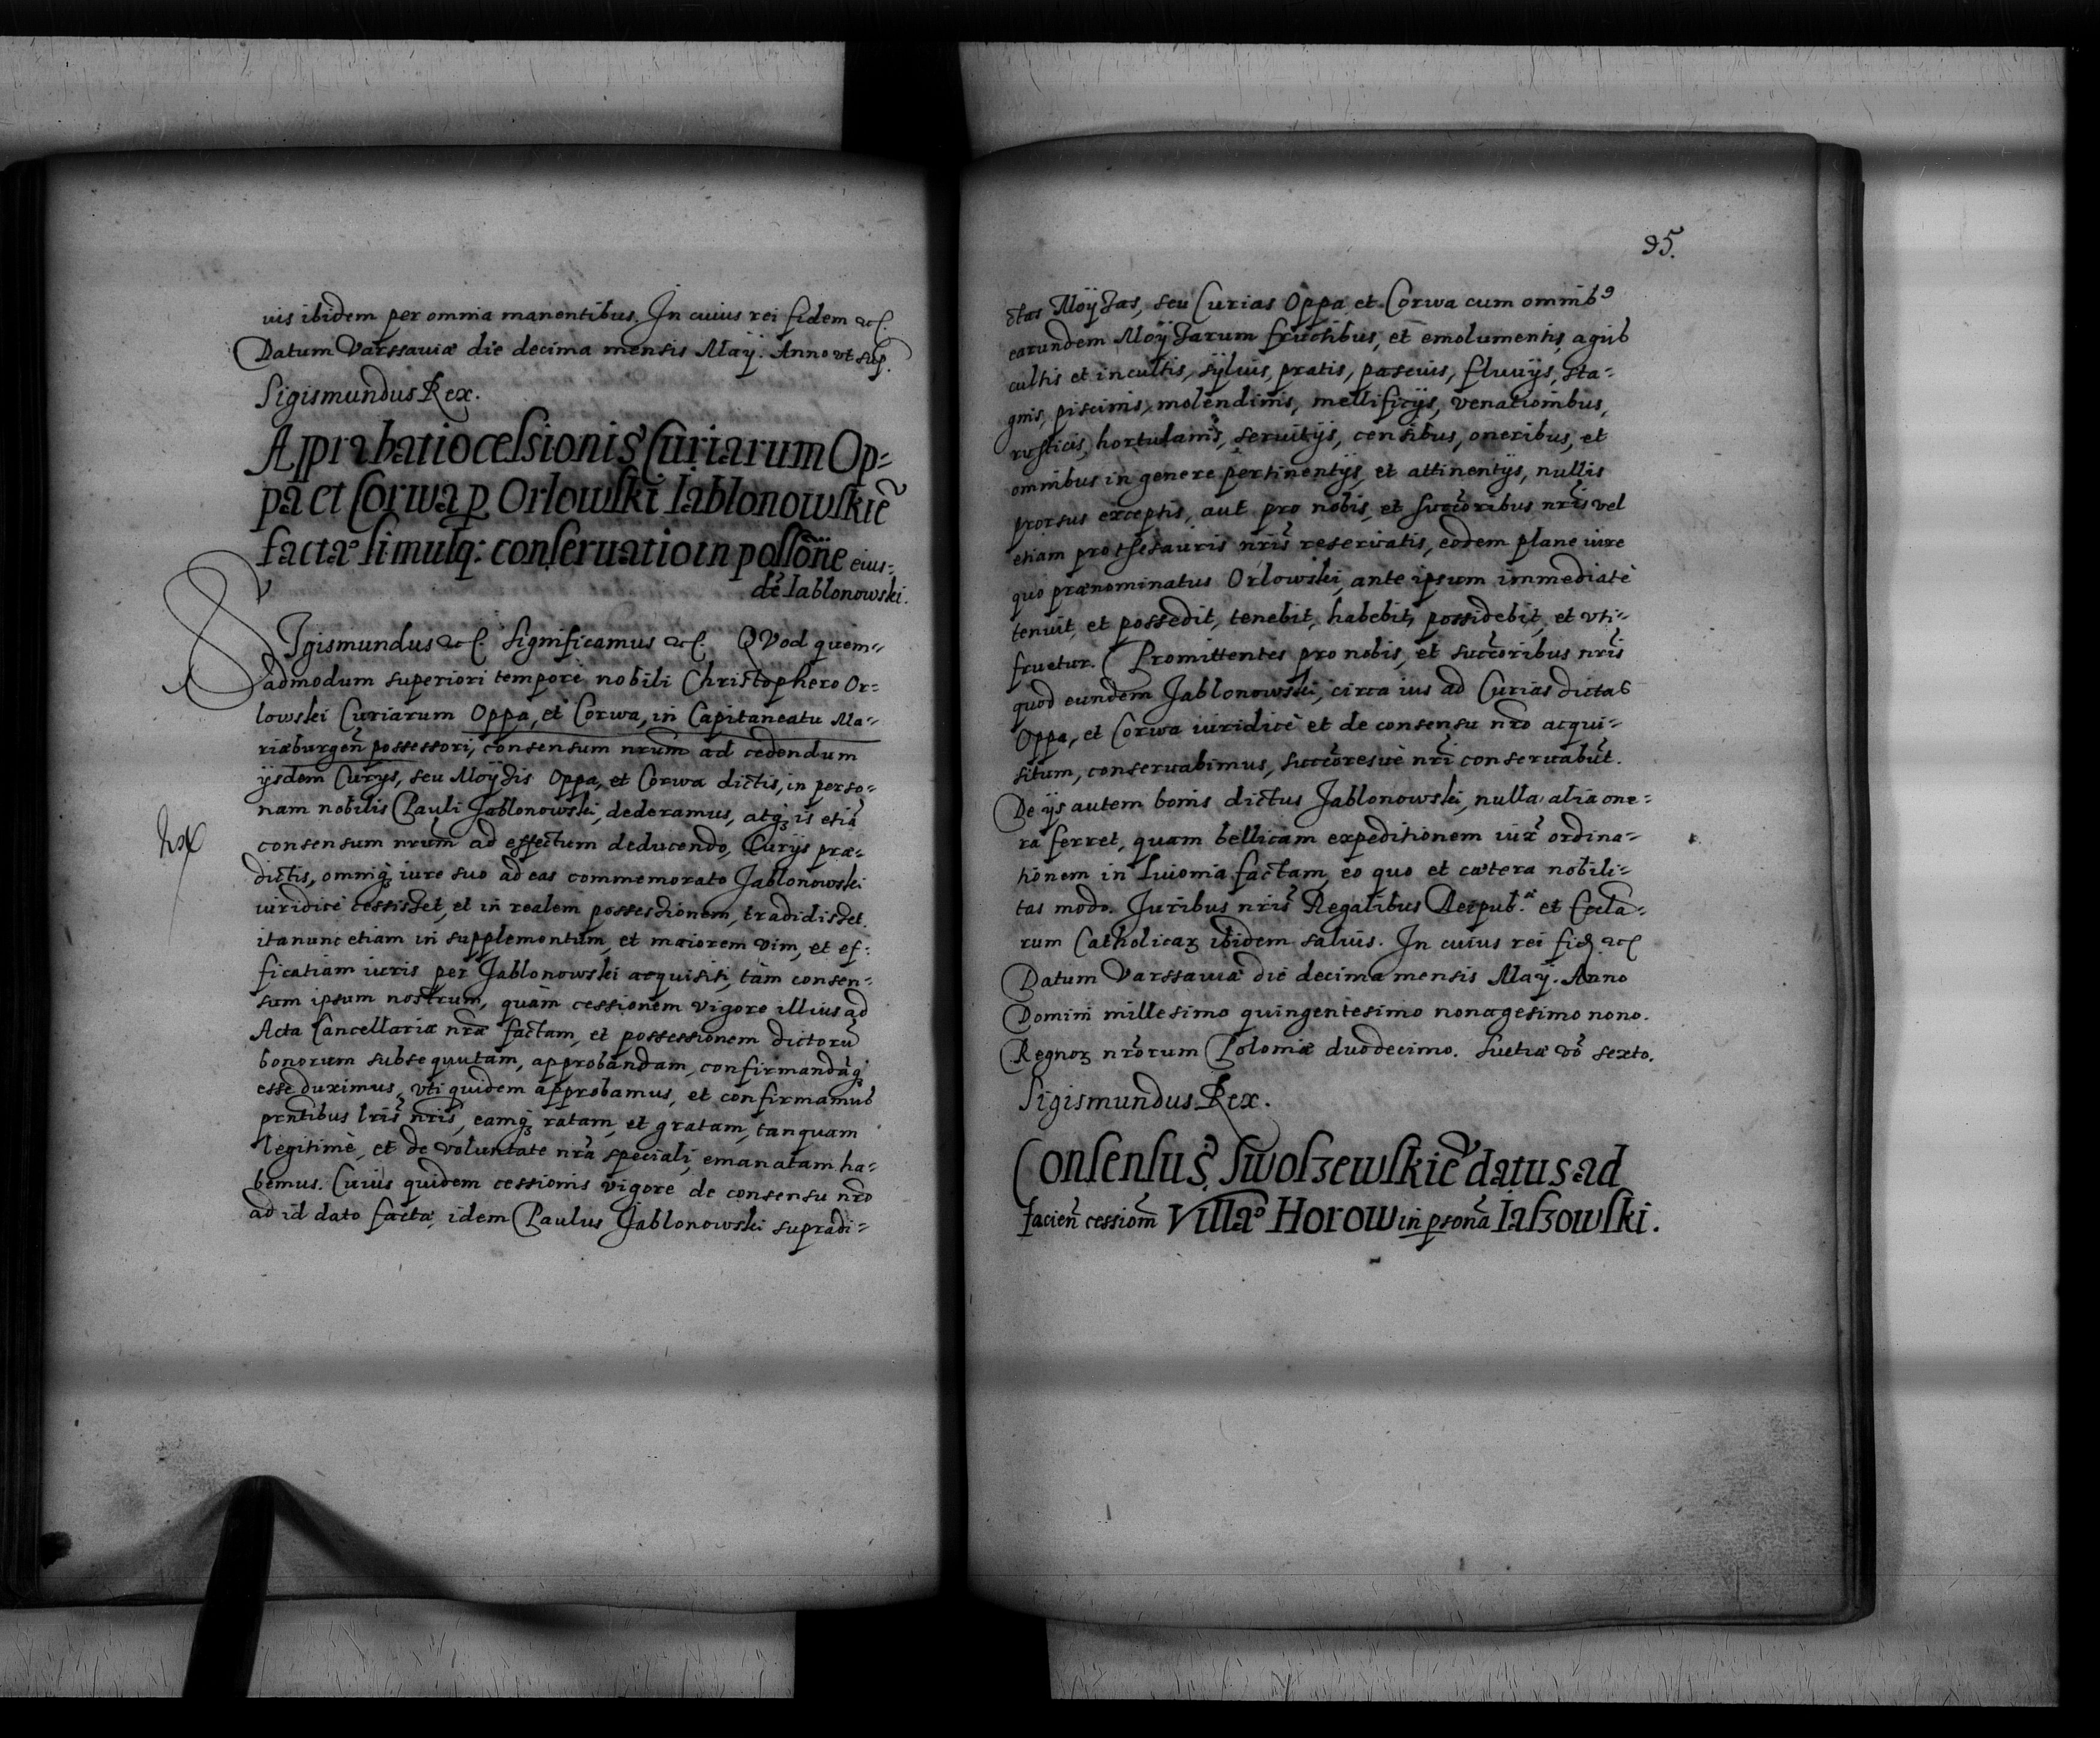 uis ibidem per omnia manentibus. In cuius rei fidem etc.
Datum Varssauiæ die decima mensis Maij. Anno vt sup.
Sigismundus Rex.
Approbatio cessionis Curiarum Op=
pa et Corwa p Orlowski Iablonowskiẽ
factæ simulq: conseruatio in possõne eius=
dẽ Iablonowski.
SIgismundus etc. Significamus etc. QVod quem=
admodum superiori tempore nobili Christophero Or=
lowski Curiarum Oppa, et Corwa, in Capitaneatu Ma=
riæburgeñ possessori, consensum nrum̃ ad cedendum
ijsdem Curijs, seu Moÿzis Oppa, et Corwa dictis, in perso=
nam nobilis Pauli Jablonowski, dederamus, atq3 is etiã
consensum nrum̃ ad effectum deducendo, Curijs præ=
dictis, omniq3 iure suo ad eas commemorato Jablonowski
iuridicè cessisset, et in realem possessionem, tradidisset.
ita nunc etiam in supplementum, et maiorem vim, et ef=
ficatiam iuris per Jablonowski acquisiti, tàm consen=
sum ipsum nostrum, quàm cessionem vigore illius ad
Acta Cancellariæ nræ factam, et possessionem dictorũ
bonorum subsequutam, approbandam, confirmandãq3
esse duximus, vti quidem approbamus, et confirmamus
prñtibus lris̃ nris̃, eamq3 ratam, et gratam, tanquam
legitimè, et de voluntate nrã speciali, emanatam ha=
bemus. Cuius quidem cessionis vigore de consensu nrõ
ad id dato factæ, idem Paulus Jablonowski supradi=
95.
ctas Moÿzas, seu Curias Oppa et Corwa cum omnib9
earundem Moÿzarum fructibus, et emolumentis, agris
cultis et incultis, sÿluis, pratis, pascuis, fluuijs, sta=
gnis, piscinis, molendinis, mellificijs, venationibus,
rusticis, hortulanis, seruitijs, censibus, oneribus, et
omnibus in genere pertinentijs, et attinentijs, nullis
prorsus exceptis, aut pro nobis, et succõribus nris̃ vel
etiam pro thesauris nris̃ reseruatis, eodem plane iure
quo prænominatus Orlowski, ante ipsum immediatè
tenuit, et possedit, tenebit, habebit, possidebit, et vti=
fruetur. Promittentes pro nobis, et succõribus nris̃
quod eundem Jablonowski, circa ius ad Curias dictas
Oppa, et Corwa iuridicè et de consensu nrõ acqui=
situm, conseruabimus, succõresuè nrĩ conseruabũt.
De ijs autem bonis dictus Jablonowski, nulla alia one=
ra ferret, quam bellicam expeditionem iux̃ ordina=
tionem in Liuonia factam, eo quo et cætera nobili=
tas modo. Juribus nris̃ Regalibus Reipub.æ et Eccla=
rum Catholicar3 ibidem saluis. In cuius rei fid etc
Datum Varssauiæ die decima mensis Maij. Anno
Domini millesimo quingentesimo nonagesimo nono.
Regnor3 nrõrum Poloniæ duodecimo. Suetiæ võ sexto.
Sigismundus Rex.
Consensus Swoszewskiẽ datus ad
facień cessiom̃ Villæ Horow in psonã Iaszowski.